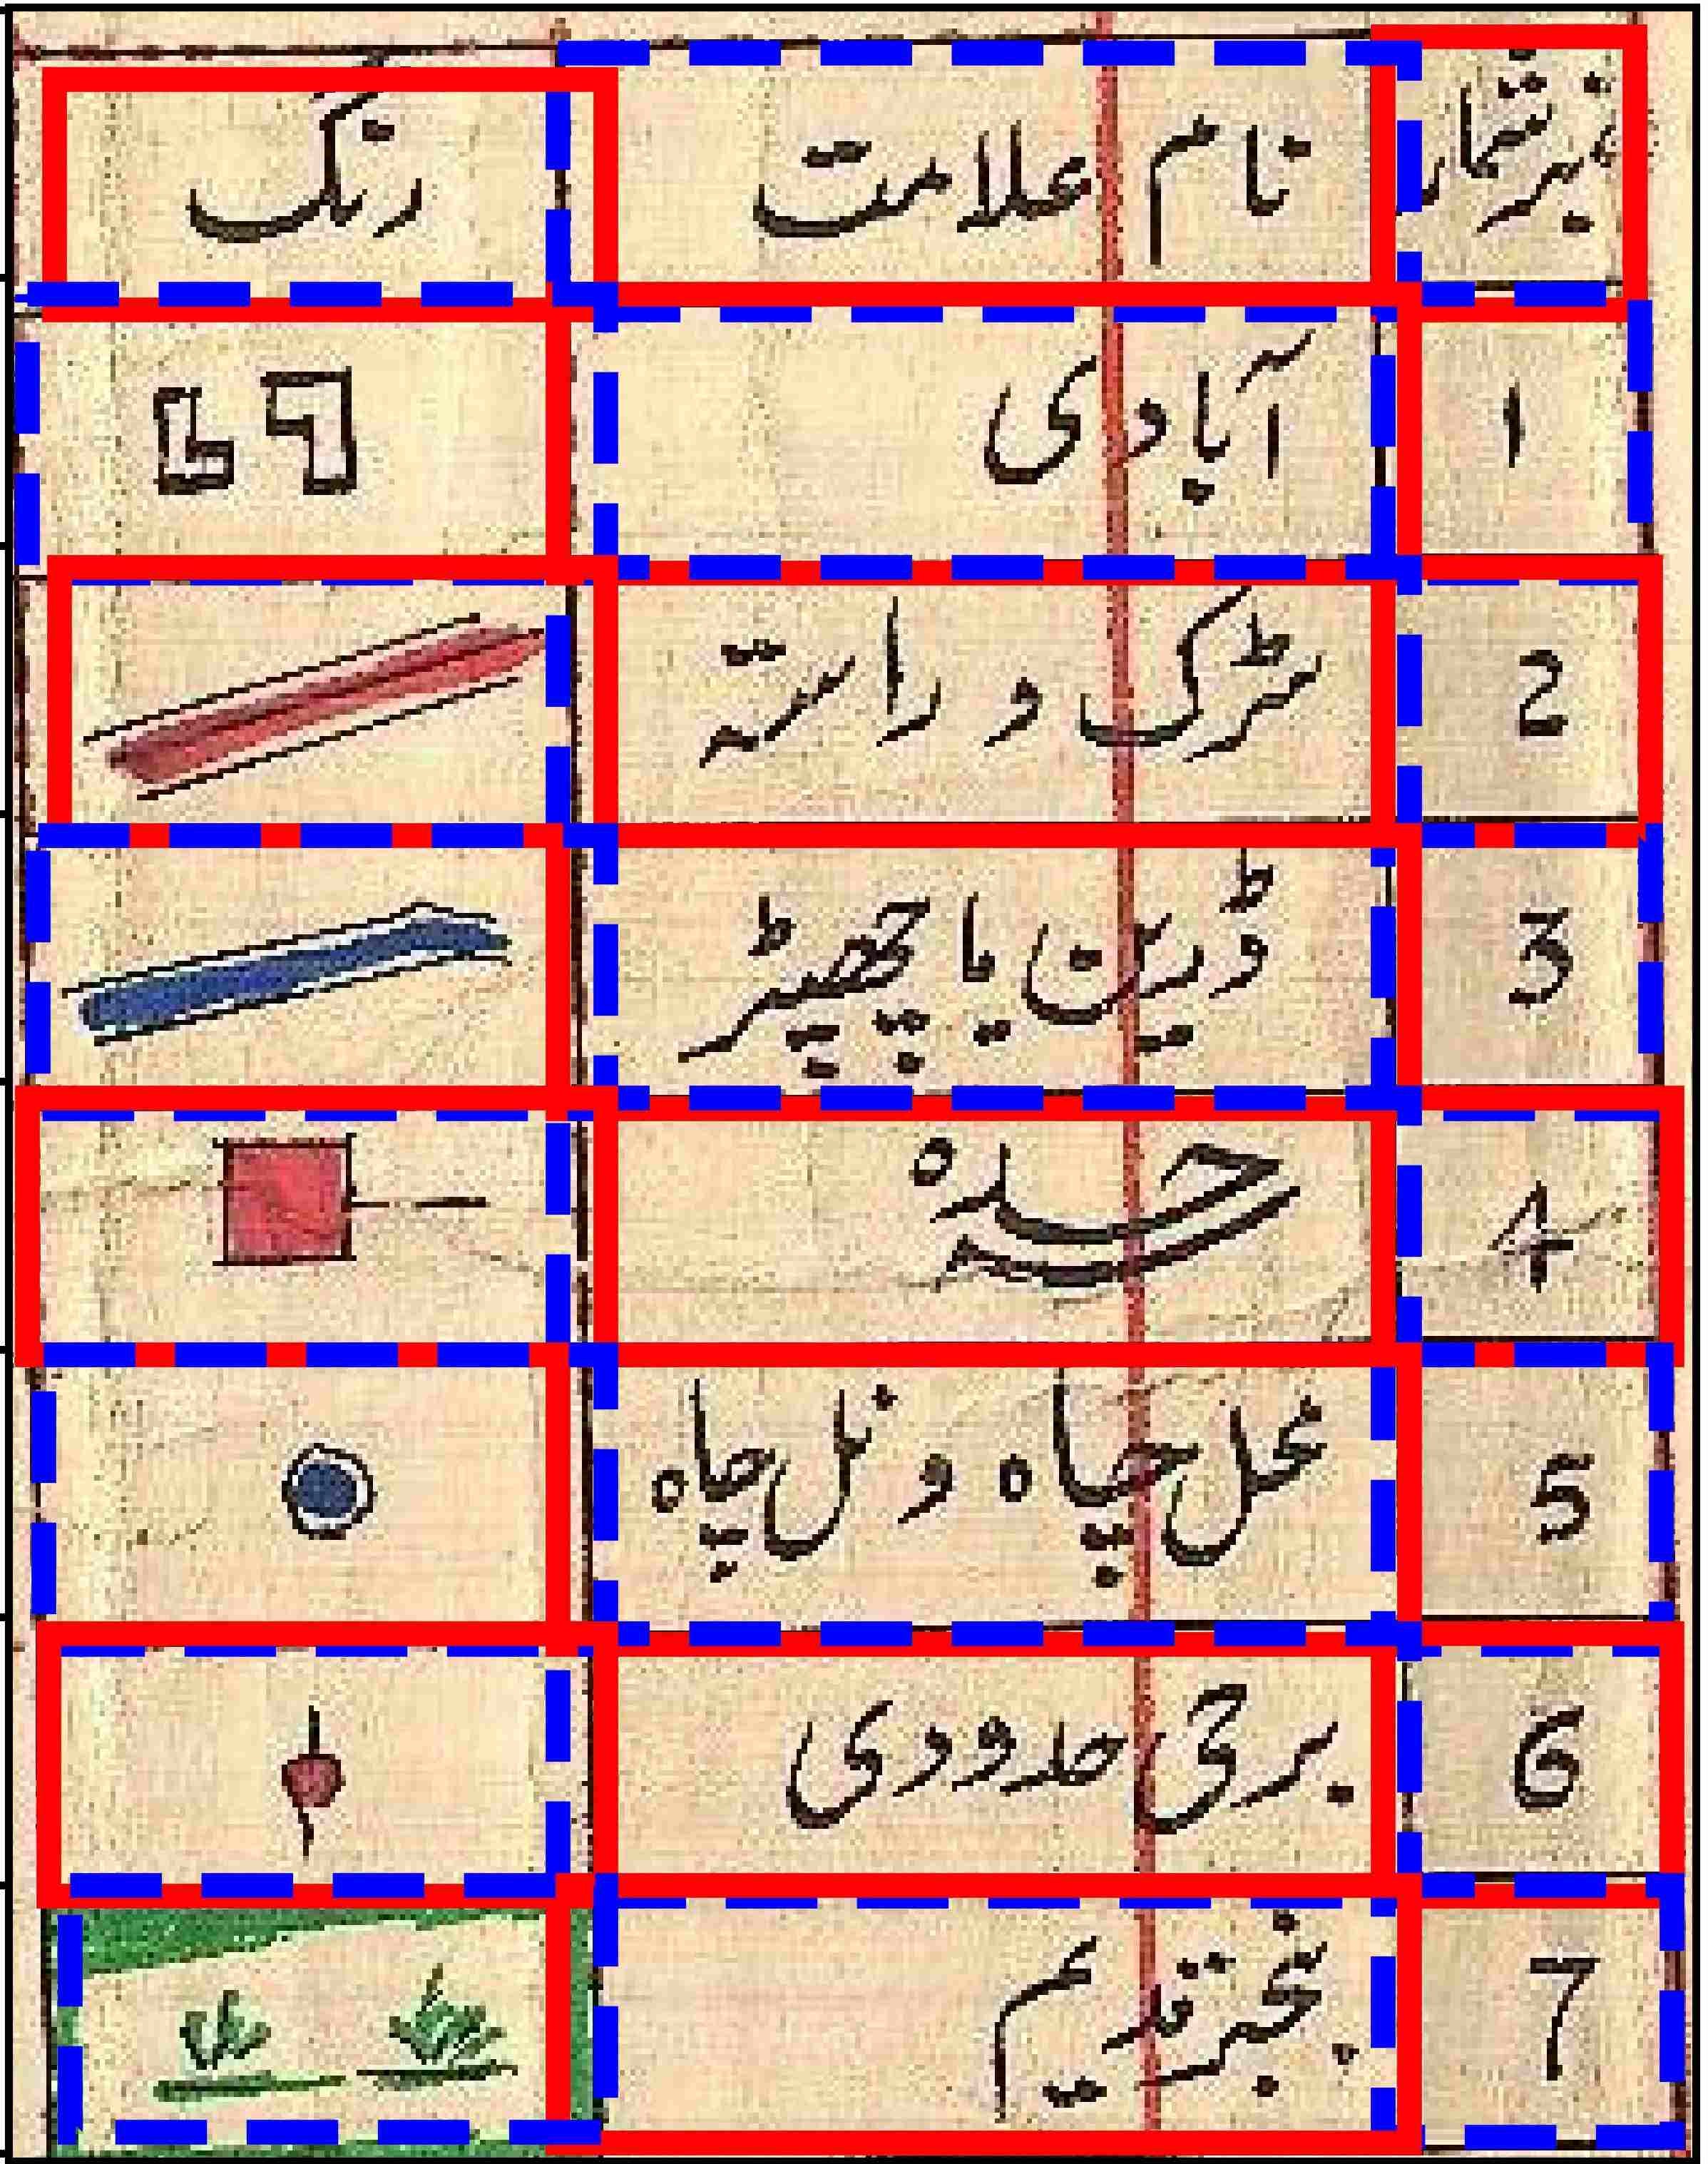 نمبر شمار نام علامت رنگ
۱ آبادی
2 سڑک و راستہ
3 ڈرین یا چھپڑ
4
5 محل چاہ و نل چاہ
6 برجی حدودی
7 بنجر قدیم